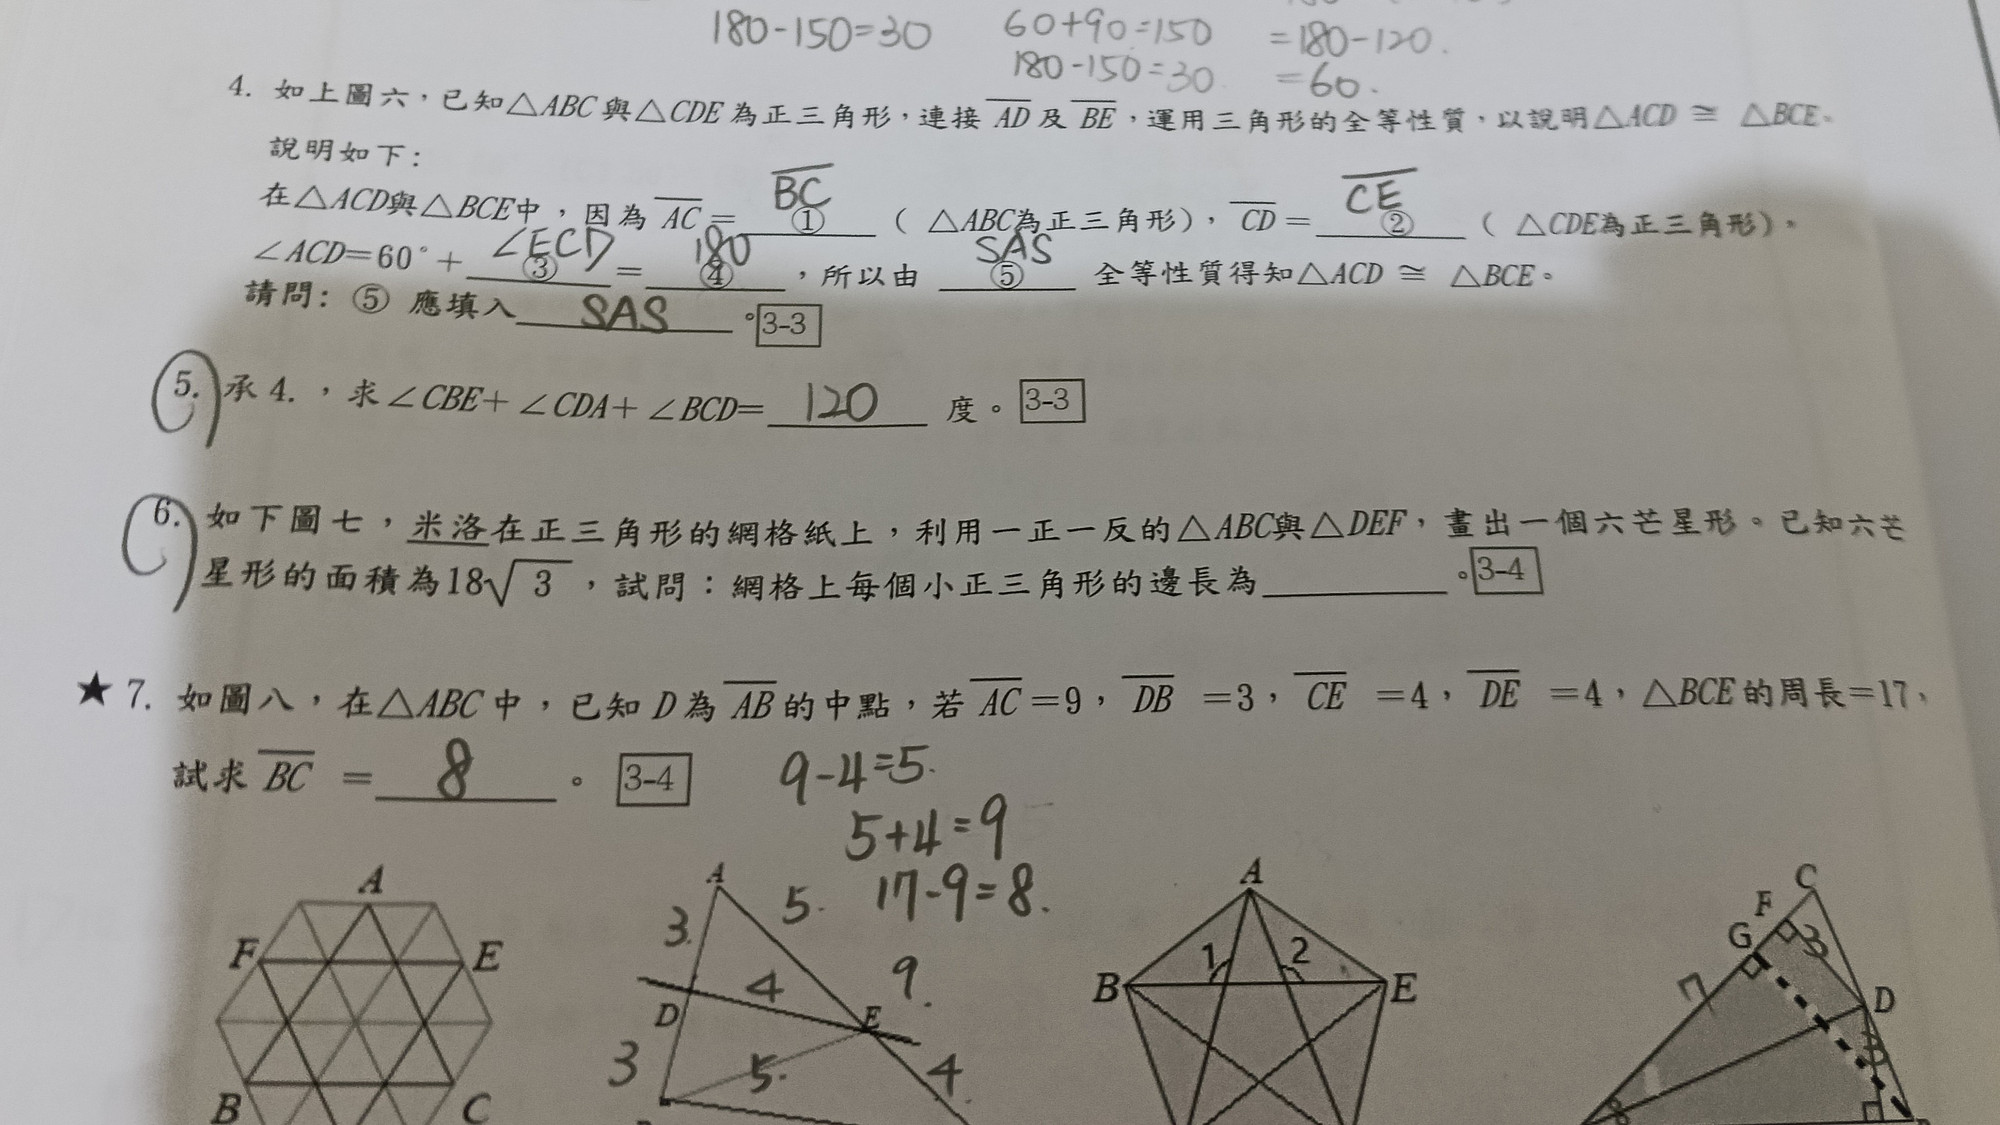 180-150=30 60+90=150 =180-120.
180-150=30 =60.
4. 如上圖六，已知△ABC與△CDE為正三角形，連接AD及BE，運用三角形的全等性質，以說明△ACD ≅ △BCE。
說明如下：
在△ACD與△BCE中，因為AC=BC①（△ABC為正三角形），CD=CE②（△CDE為正三角形），
∠ACD=60°+∠ECD③=180④，所以由SAS⑤全等性質得知△ACD ≅ △BCE。
請問：⑤應填入SAS。3-3
5. 承4.，求∠CBE+∠CDA+∠BCD=120度。3-3
6. 如下圖七，米洛在正三角形的網格紙上，利用一正一反的△ABC與△DEF，畫出一個六芒星形。已知六芒
星形的面積為18√3，試問：網格上每個小正三角形的邊長為。3-4
★7. 如圖八，在△ABC中，已知D為AB的中點，若AC=9，DB=3，CE=4，DE=4，△BCE的周長=17，
試求BC=8。3-4
9-4=5.
5+4=9
17-9=8.
A
F E
B C
A
3. 5.
4 9.
D E
3 5. 4
A
1 2
B E
C
F
G 3
7 D